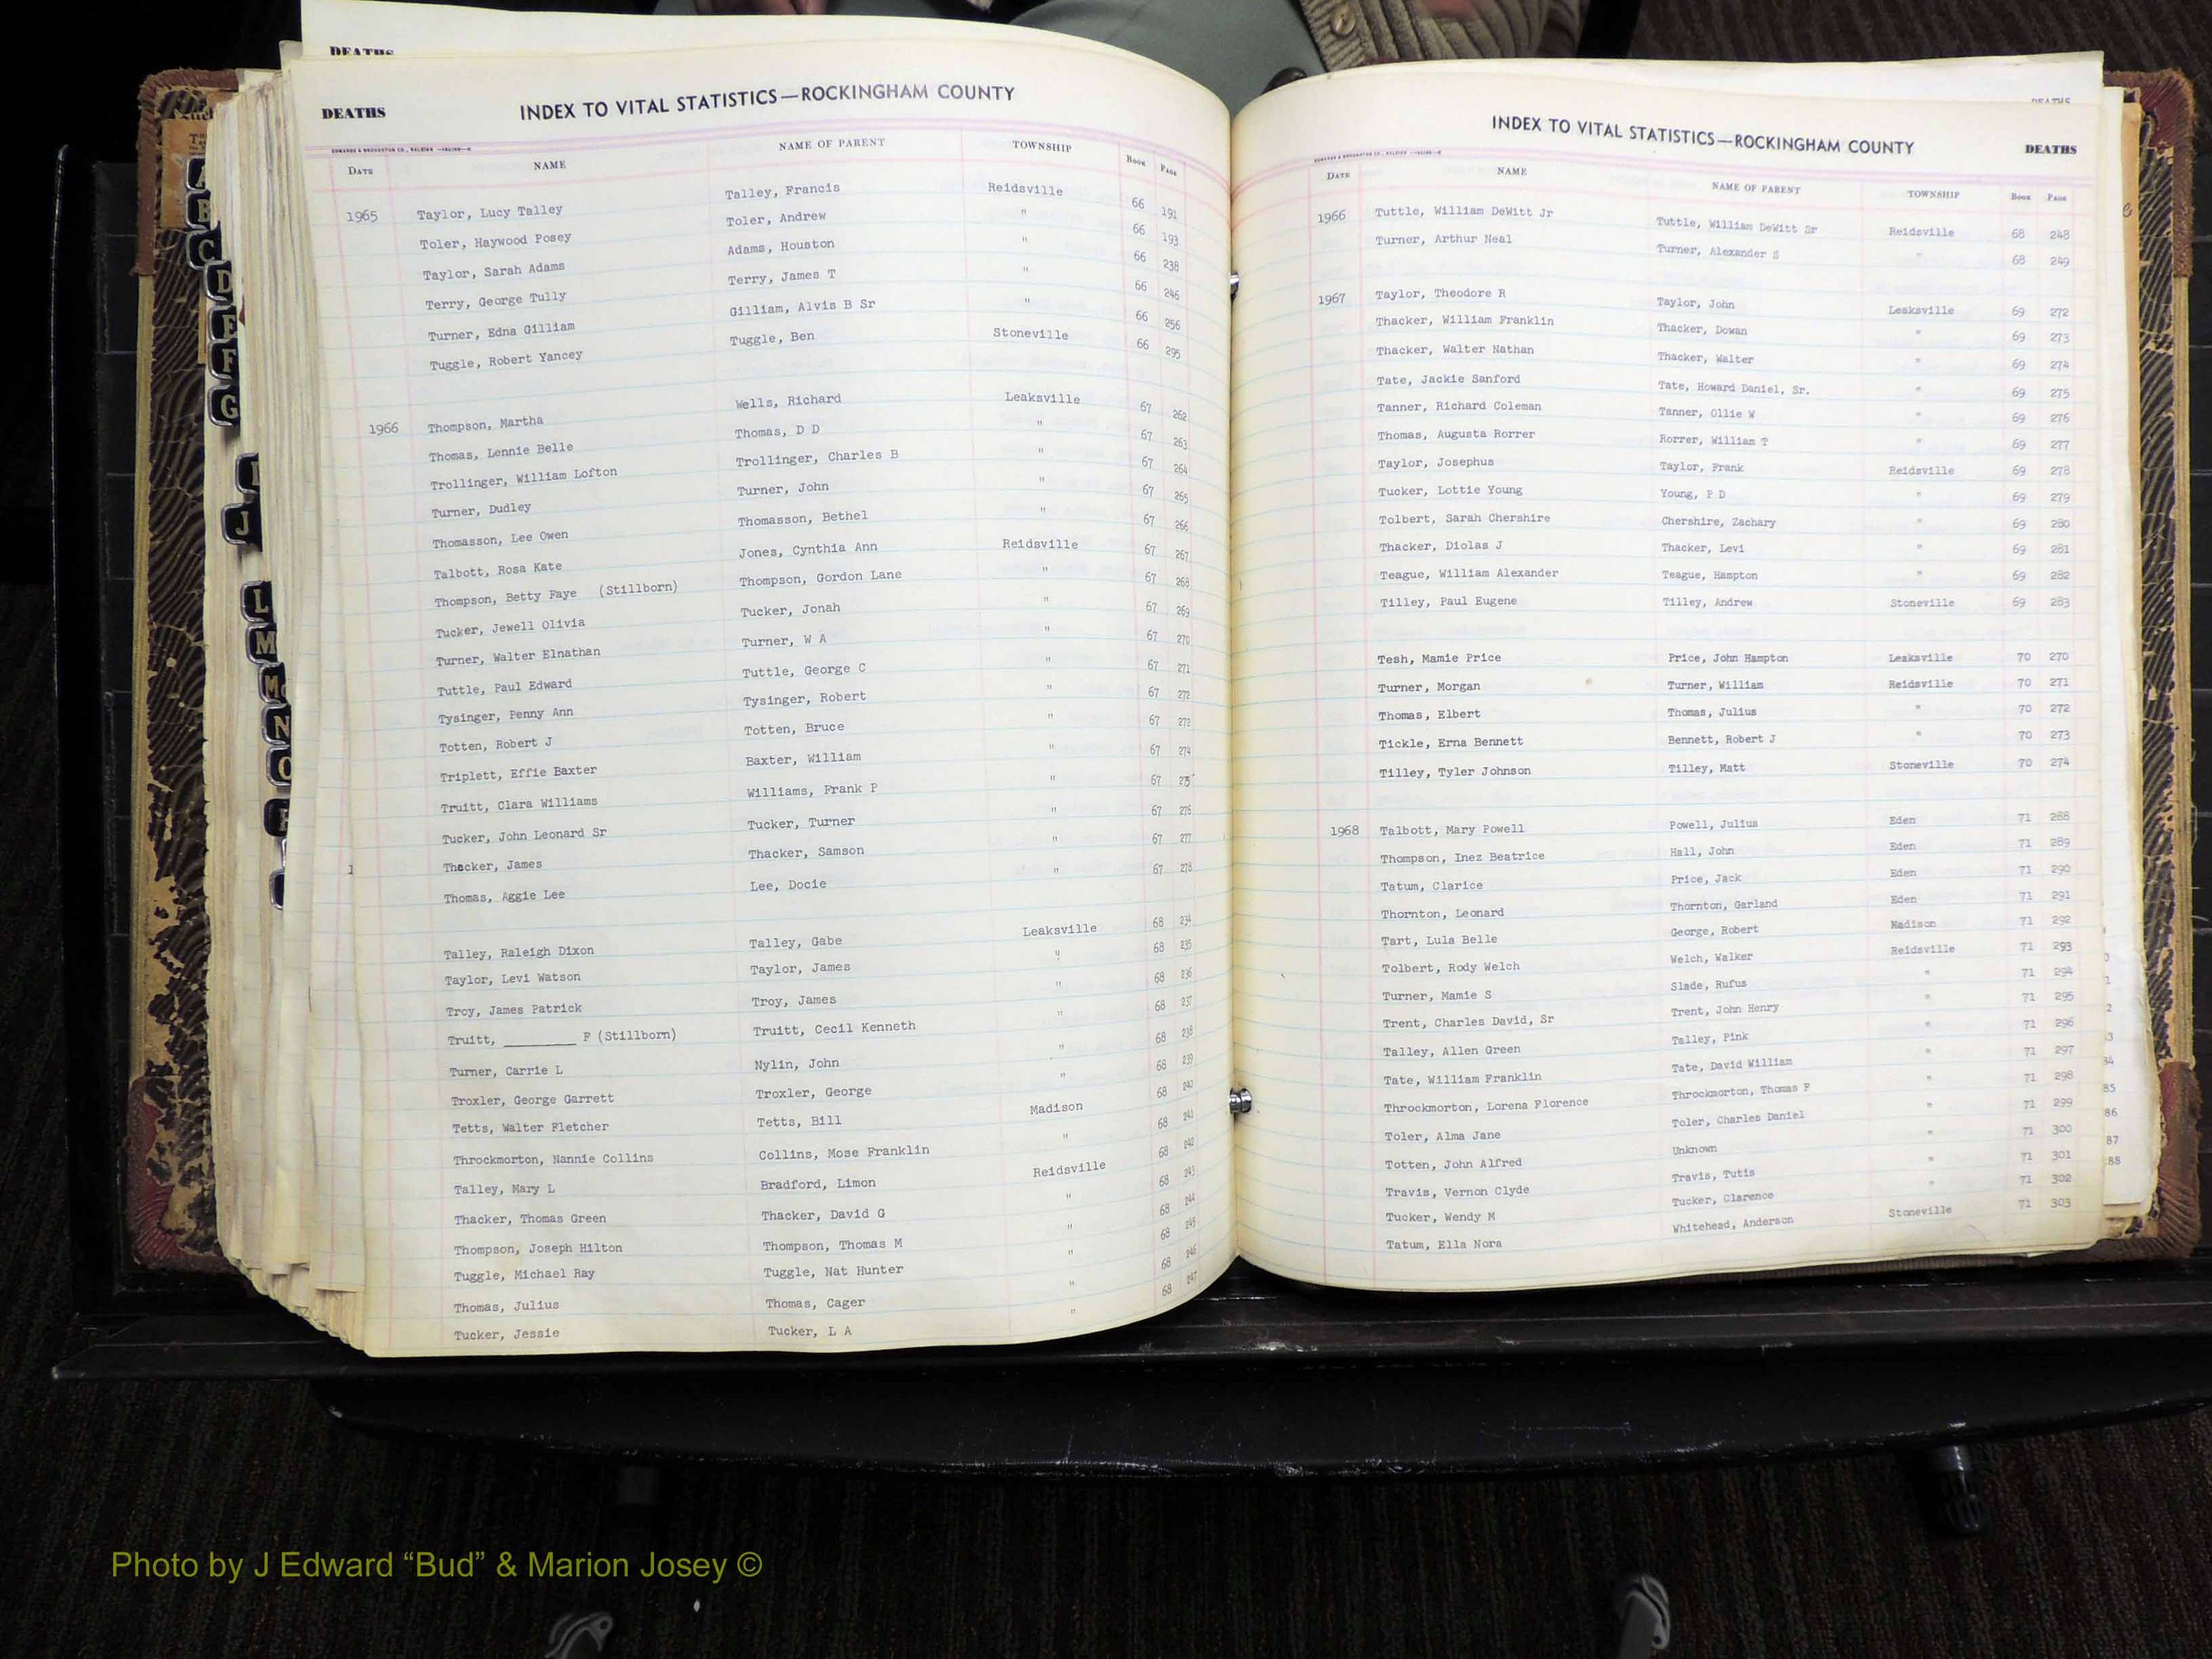 DEATHS
DEATHS
INDEX TO VITAL STATISTICS—ROCKINGHAM COUNTY
EDWARDS & BROUGHTON CO., RALEIGH
DATE NAME NAME OF PARENT TOWNSHIP BOOK PAGE
1965 Taylor, Lucy Talley Talley, Francis Reidsville 66 191
Toler, Haywood Posey Toler, Andrew " 66 193
Taylor, Sarah Adams Adams, Houston " 66 238
Terry, George Tully Terry, James T " 66 246
Turner, Edna Gilliam Gilliam, Alvis B Sr " 66 256
Tuggle, Robert Yancey Tuggle, Ben Stoneville 66 295
1966 Thompson, Martha Wells, Richard Leaksville 67 262
Thomas, Lennie Belle Thomas, D D " 67 263
Trollinger, William Lofton Trollinger, Charles B " 67 264
Turner, Dudley Turner, John " 67 265
Thomasson, Lee Owen Thomasson, Bethel " 67 266
Talbott, Rosa Kate Jones, Cynthia Ann Reidsville 67 267
Thompson, Betty Faye (Stillborn) Thompson, Gordon Lane " 67 268
Tucker, Jewell Olivia Tucker, Jonah " 67 269
Turner, Walter Elnathan Turner, W A " 67 270
Tuttle, Paul Edward Tuttle, George C " 67 271
Tysinger, Penny Ann Tysinger, Robert " 67 272
Totten, Robert J Totten, Bruce " 67 272
Triplett, Effie Baxter Baxter, William " 67 274
Truitt, Clara Williams Williams, Frank P " 67 275
Tucker, John Leonard Sr Tucker, Turner " 67 276
1 Thacker, James Thacker, Samson " 67 277
Thomas, Aggie Lee Lee, Docie " 67 278
Talley, Raleigh Dixon Talley, Gabe Leaksville 68 234
Taylor, Levi Watson Taylor, James " 68 235
Troy, James Patrick Troy, James " 68 236
Truitt, ________ F (Stillborn) Truitt, Cecil Kenneth " 68 237
Turner, Carrie L Nylin, John " 68 238
Troxler, George Garrett Troxler, George " 68 239
Tetts, Walter Fletcher Tetts, Bill Madison 68 240
Throckmorton, Nannie Collins Collins, Mose Franklin " 68 241
Talley, Mary L Bradford, Limon Reidsville 68 242
Thacker, Thomas Green Thacker, David G " 68 243
Thompson, Joseph Hilton Thompson, Thomas M " 68 244
Tuggle, Michael Ray Tuggle, Nat Hunter " 68 245
Thomas, Julius Thomas, Cager " 68 246
Tucker, Jessie Tucker, L A " 68 247
DEATHS
INDEX TO VITAL STATISTICS—ROCKINGHAM COUNTY
DEATHS
EDWARDS & BROUGHTON CO., RALEIGH
DATE NAME NAME OF PARENT TOWNSHIP BOOK PAGE
1966 Tuttle, William DeWitt Jr Tuttle, William DeWitt Sr Reidsville 68 248
Turner, Arthur Neal Turner, Alexander S " 68 249
1967 Taylor, Theodore R Taylor, John Leaksville 69 272
Thacker, William Franklin Thacker, Dowan " 69 273
Thacker, Walter Nathan Thacker, Walter " 69 274
Tate, Jackie Sanford Tate, Howard Daniel, Sr. " 69 275
Tanner, Richard Coleman Tanner, Ollie W " 69 276
Thomas, Augusta Rorrer Rorrer, William T " 69 277
Taylor, Josephus Taylor, Frank Reidsville 69 278
Tucker, Lottie Young Young, P D " 69 279
Tolbert, Sarah Chershire Chershire, Zachary " 69 280
Thacker, Diolas J Thacker, Levi " 69 281
Teague, William Alexander Teague, Hampton " 69 282
Tilley, Paul Eugene Tilley, Andrew Stoneville 69 283
Tesh, Mamie Price Price, John Hampton Leaksville 70 270
Turner, Morgan Turner, William Reidsville 70 271
Thomas, Elbert Thomas, Julius " 70 272
Tickle, Erna Bennett Bennett, Robert J " 70 273
Tilley, Tyler Johnson Tilley, Matt Stoneville 70 274
1968 Talbott, Mary Powell Powell, Julius Eden 71 288
Thompson, Inez Beatrice Hall, John Eden 71 289
Tatum, Clarice Price, Jack Eden 71 290
Thornton, Leonard Thornton, Garland Eden 71 291
Tart, Lula Belle George, Robert Madison 71 292
Tolbert, Rody Welch Welch, Walker Reidsville 71 293
Turner, Mamie S Slade, Rufus " 71 294
Trent, Charles David, Sr Trent, John Henry " 71 295
Talley, Allen Green Talley, Pink " 71 296
Tate, William Franklin Tate, David William " 71 297
Throckmorton, Lorena Florence Throckmorton, Thomas F " 71 298
Toler, Alma Jane Toler, Charles Daniel " 71 299
Totten, John Alfred Unknown " 71 300
Travis, Vernon Clyde Travis, Tutis " 71 301
Tucker, Wendy M Tucker, Clarence " 71 302
Tatum, Ella Nora Whitehead, Anderson Stoneville 71 303
85
86
87
88
A
B
C
D
E
F
G
J
L
M
Mc
N
O
Photo by J Edward “Bud” & Marion Josey ©